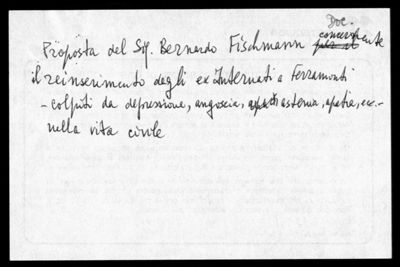 Doc.
Proposta del Sig. Bernardo Fischmann concernente
il reinserimento degli ex Internati a Ferramonti
- colpiti da depressione, angoscia, astenia, apatia, ecc. -
nella vita civile